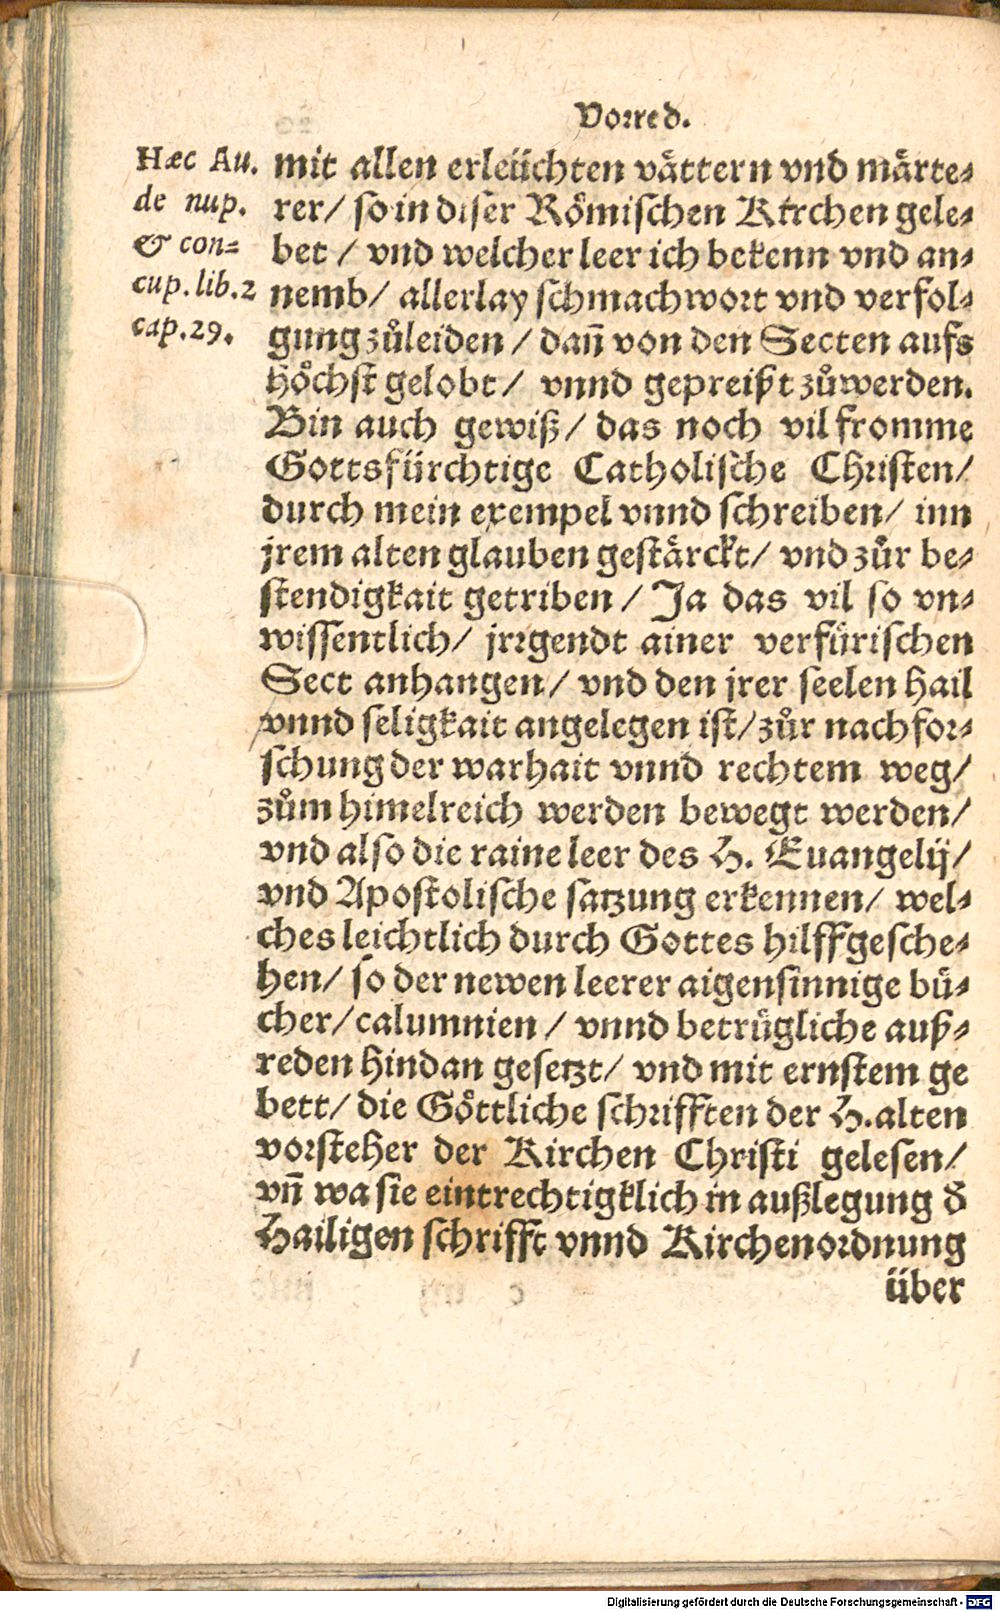 Vorred.
Hæc Au.
de nup.
& con-
cup. lib. 2
cap. 29.
mit allen erleüchten vättern vnd märte-
rer/ so in diser Römischen Kirchen gele-
bet / vnd welcher leer ich bekenn vnd an-
nemb/ allerlay schmachwort vnd verfol-
gung zůleiden / dañ von den Secten aufs
höchst gelobt/ vnnd gepreißt zůwerden.
Bin auch gewiß/ das noch vil fromme
Gottsfürchtige Catholische Christen/
durch mein exempel vnnd schreiben/ inn
jrem alten glauben gestärckt/ vnd zůr be-
stendigkait getriben / Ja das vil so vn-
wissentlich/ jrrgendt ainer verfürischen
Sect anhangen/ vnd den jrer seelen hail
vnnd seligkait angelegen ist/ zůr nachfor-
schung der warhait vnnd rechtem weg/
zům himelreich werden bewegt werden/
vnd also die raine leer des H. Euangelij/
vnd Apostolische satzung erkennen/ wel-
ches leichtlich durch Gottes hilff gesche-
hen/ so der newen leerer aigensinnige bü-
cher/ calumnien / vnnd betrügliche auß-
reden hindan gesetzt/ vnd mit ernstem ge
bett/ die Göttliche schrifften der H. alten
vorsteher der Kirchen Christi gelesen/
vñ wa sie eintrechtigklich in außlegung d̕
Hailigen schrifft vnnd Kirchenordnung
über
Digitalisierung gefördert durch die Deutsche Forschungsgemeinschaft - DFG